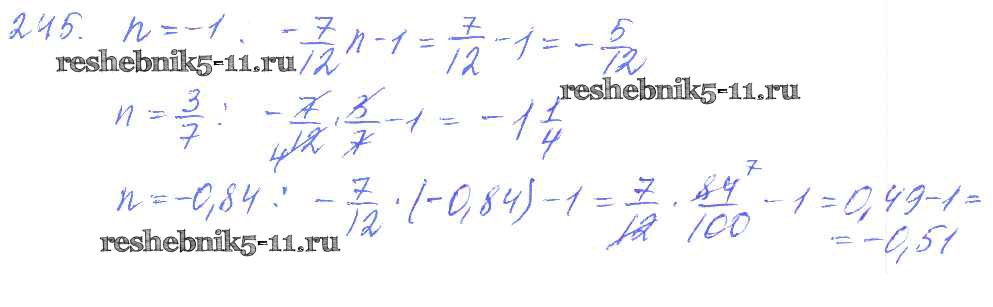 245. n = -1 : -7/12 n - 1 = 7/12 - 1 = -5/12
reshebnik5-11.ru
reshebnik5-11.ru
n = 3/7 : -7/12 · 3/7 - 1 = -1 1/4
4
n = -0,84 : -7/12 · (-0,84) - 1 = 7/12 · 84/100 - 1 = 0,49 - 1 =
7
= -0,51
reshebnik5-11.ru